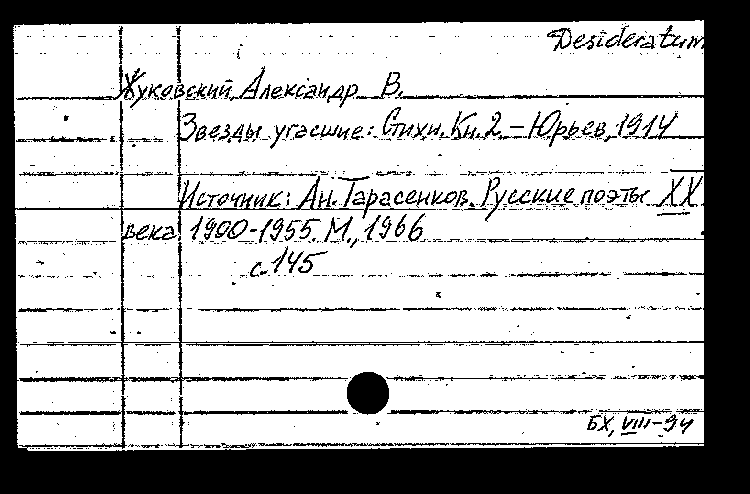 Desideratum
Жуковский, Александр В.
Звезды угасшие: Стихи. Кн. 2. – Юрьев, 1914
Источник: Ан. Тарасенков. Русские поэты XX
века 1900-1955. М., 1966
с. 145
БХ, VIII-94